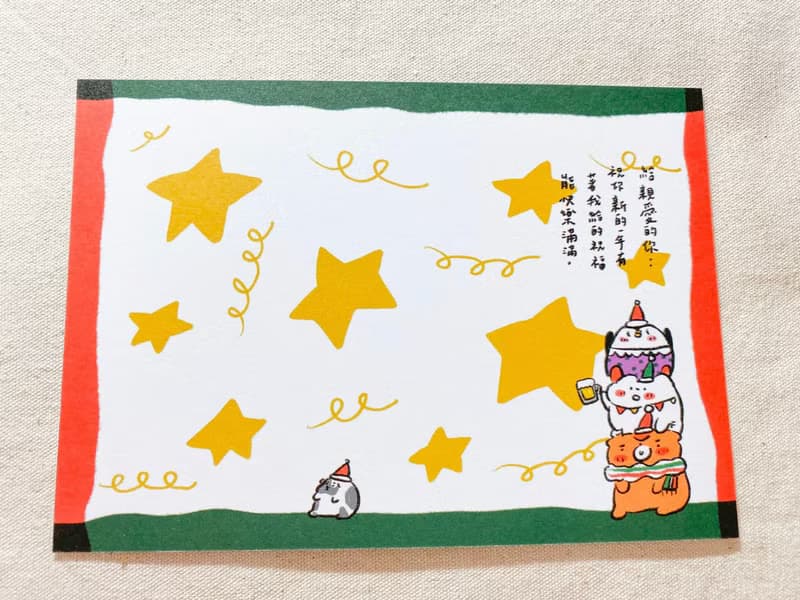 給親愛的你：
祝你新的一年有
著我給的祝福
能快樂滿滿。